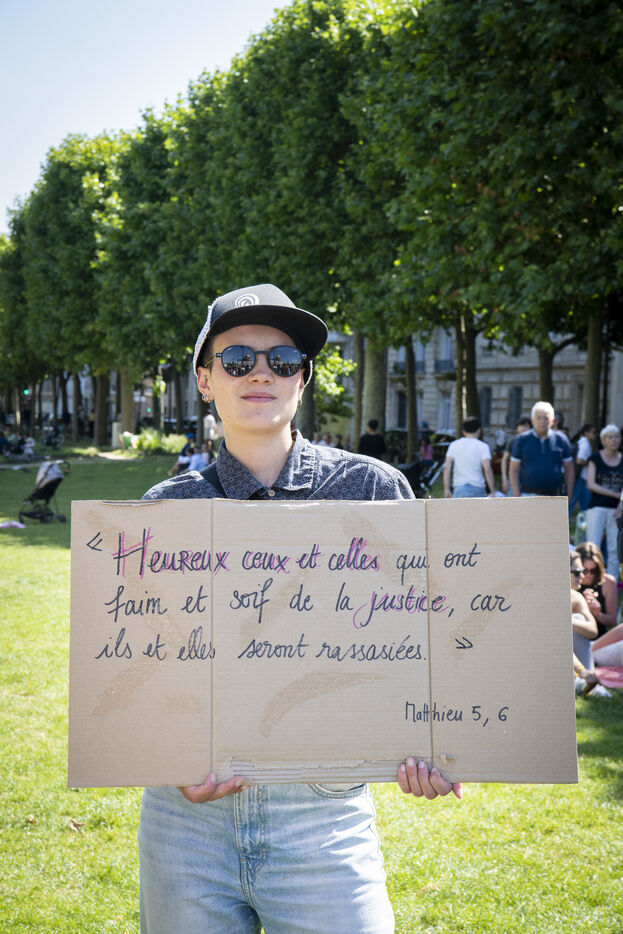 « Heureux ceux et celles qui ont
faim et soif de la justice, car
ils et elles seront rassasiées. »
Matthieu 5, 6